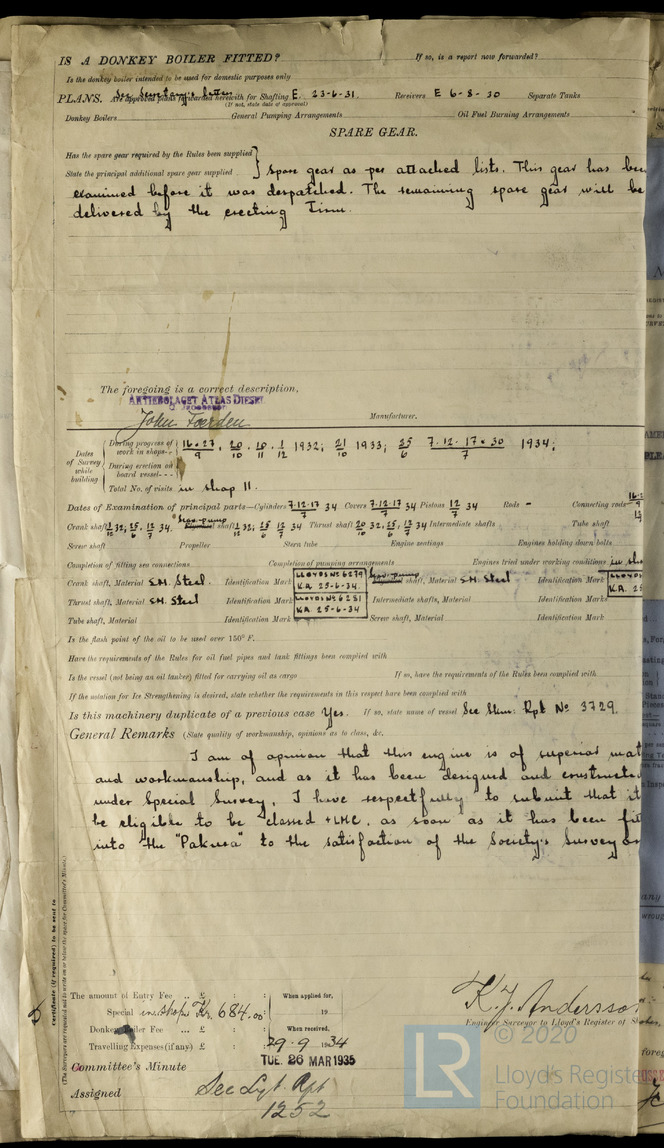 IS A DONKEY BOILER FITTED? If so, is a report now forwarded?
Is the donkey boiler intended to be used for domestic purposes only
See Secretary's letter
PLANS. Are approved plans forwarded herewith for Shafting E. 23-6-31. Receivers E 6-8-30 Separate Tanks
(If not, state date of approval)
Donkey Boilers General Pumping Arrangements Oil Fuel Burning Arrangements
SPARE GEAR.
Has the spare gear required by the Rules been supplied
State the principal additional spare gear supplied } Spare gear as per attached lists. This gear has bee
examined before it was despatched. The remaining spare gear will be
delivered by the erecting Firm.
The foregoing is a correct description,
AKTIEBOLAGET ATLAS DIESEL
John
Manufacturer.
Dates of Survey while building
During progress of work in shops-- 16.27/9, 20/10, 10/11, 1/12 1932; 21/10 1933; 25/6 7.12.17 & 30/7 1934;
During erection on board vessel---
Total No. of visits in shop 11.
Dates of Examination of principal parts—Cylinders 7.12.17/7 34 Covers 7.12.17/7 34 Pistons 12/7 34 Rods - Connecting rods
Crank shaft 1/12 32; 25/6, 12/7 34 shaft 1/12 32; 25/6 12/7 34 Thrust shaft 20/10 32; 25/6, 12/7 34 Intermediate shafts Tube shaft
Screw shaft Propeller Stern tube Engine seatings Engines holding down bolts
Completion of fitting sea connections Completion of pumping arrangements Engines tried under working conditions in sho
Crank shaft, Material S.M. Steel. Identification Mark LLOYDS No 6279 K.A. 25-6-34. shaft, Material S.M. Steel Identification Mark LLOYDS K.A. 25
Thrust shaft, Material S.M. Steel Identification Mark LLOYDS No 6281 K.A. 25-6-34 Intermediate shafts, Material Identification Marks
Tube shaft, Material Identification Mark Screw shaft, Material Identification Mark
Is the flash point of the oil to be used over 150° F.
Have the requirements of the Rules for oil fuel pipes and tank fittings been complied with
Is the vessel (not being an oil tanker) fitted for carrying oil as cargo If so, have the requirements of the Rules been complied with
If the notation for Ice Strengthening is desired, state whether the requirements in this respect have been complied with
Is this machinery duplicate of a previous case Yes. If so, state name of vessel See Rpt No 3729.
General Remarks (State quality of workmanship, opinions as to class, &c.
I am of opinion that this engine is of superior mat
and workmanship, and as it has been designed and constructe
under Special Survey, I have respectfully to submit that it
be eligible to be classed +LMC, as soon as it has been fit
into the "Pakura" to the satisfaction of the Society's Surveyor
Certificate (if required) to be sent to
(The Surveyors are requested not to write on or below the space for Committee's Minute.)
The amount of Entry Fee .. £ : : When applied for,
Special in shop Kr. 684.00 : 19
Donkey Boiler Fee ... £ : : When received,
Travelling Expenses (if any) £ : : 29.9 1934
K. J. Andersso
Engineer Surveyor to Lloyd's Register of
TUE. 26 MAR 1935
Committee's Minute
Assigned See Lgt. Rpt
1252
© 2020
LR
Lloyd's Registe
Foundation